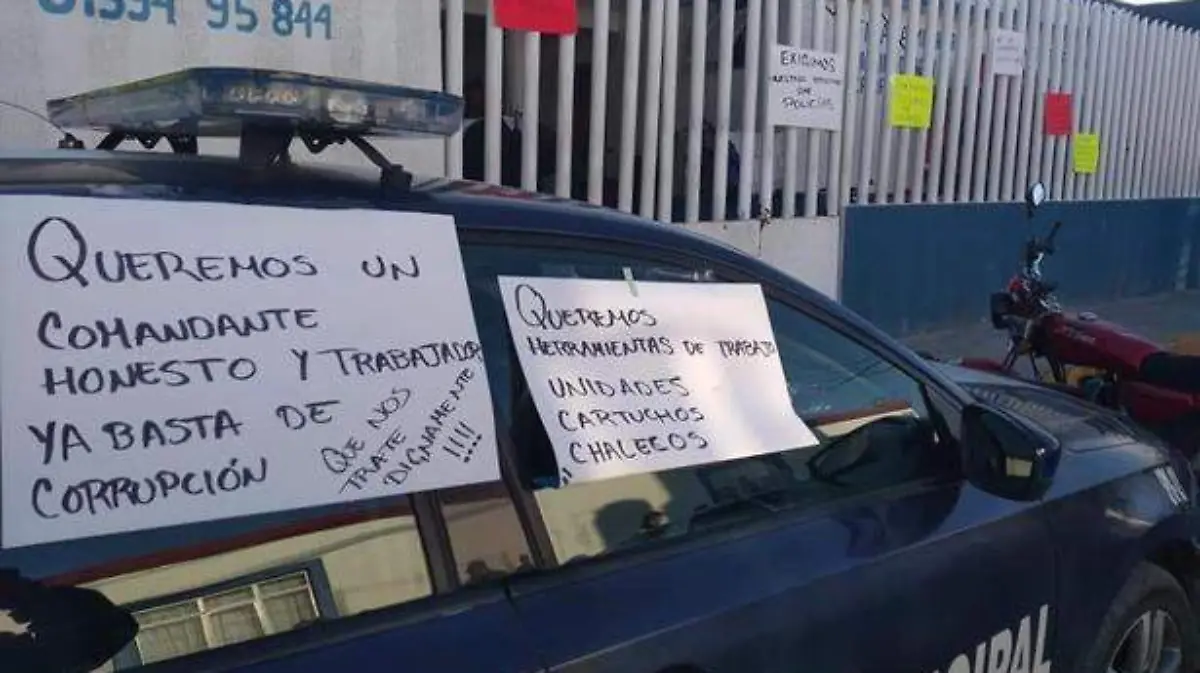 95 844
EXIGIMOS
QUEREMOS UN
COMANDANTE
HONESTO Y TRABAJADOR
YA BASTA DE
CORRUPCIÓN
QUE NOS
TRATE
DIGNAMENTE
!!!!
QUEREMOS
HERRAMIENTAS DE TRABAJO
UNIDADES
CARTUCHOS
CHALECOS